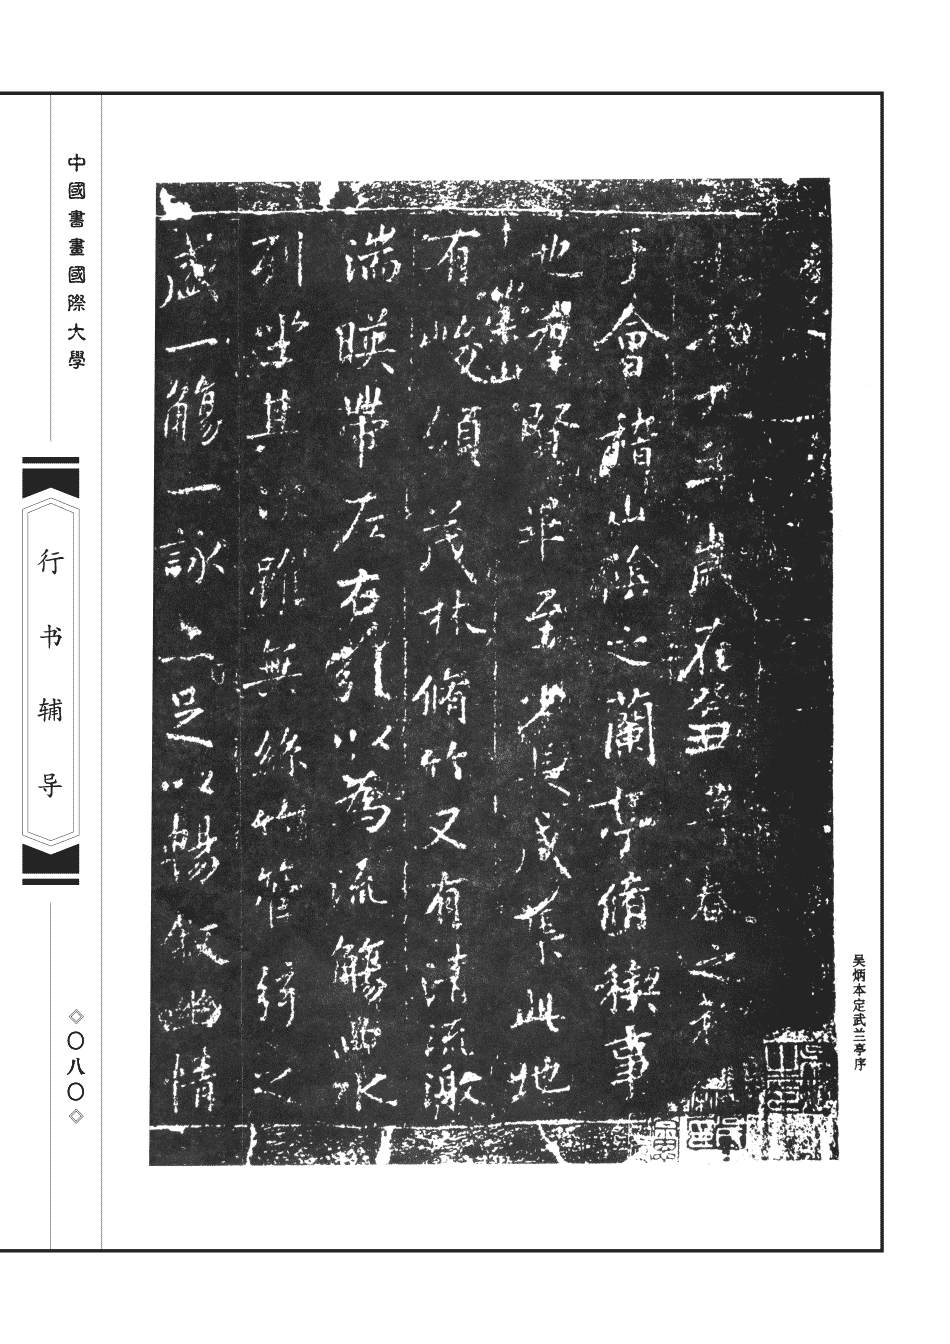 吴炳本定武兰亭序
永和九年歲在癸丑暮春之初
于會稽山陰之蘭亭脩禊事
也羣賢畢至少長咸集此地
崇山
有峻領茂林脩竹又有清流激
湍暎帶左右引以為流觴曲水
列坐其次雖無絲竹管弦之
盛一觴一詠亦足以暢敘幽情
中國書畫國際大學
行书辅导
◇〇八〇◇